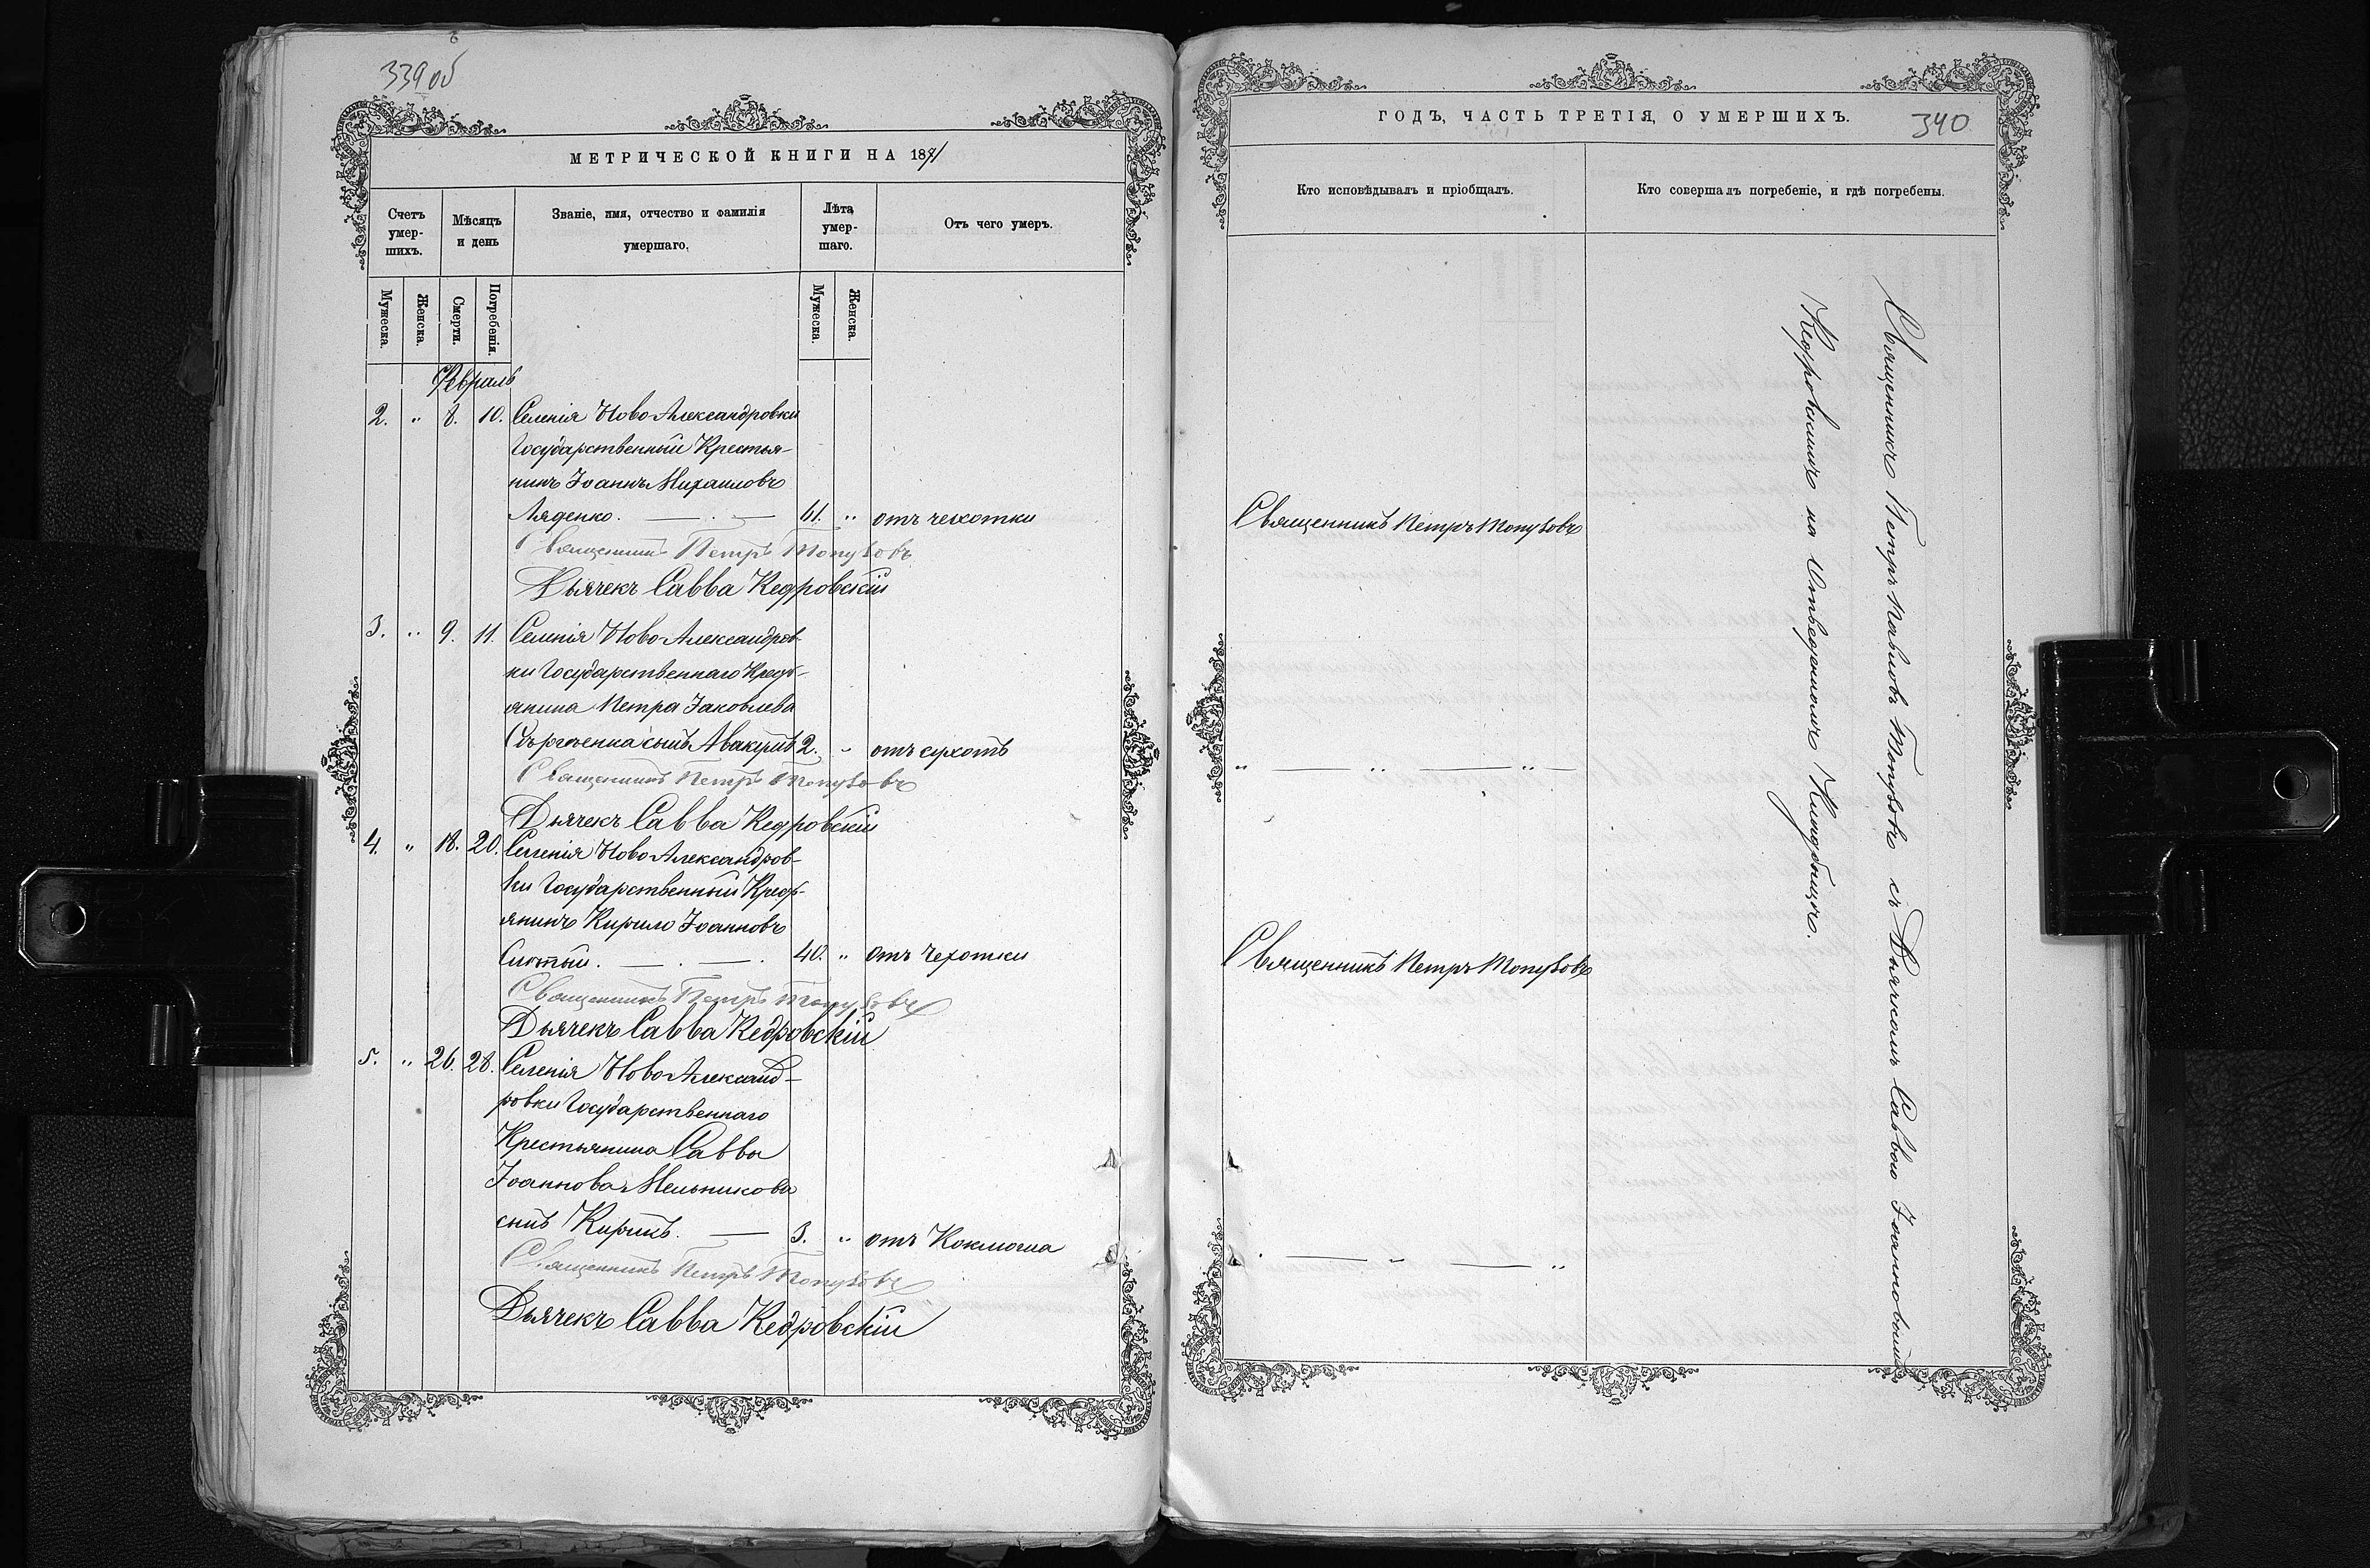 339 об
МЕТРИЧЕСКОЙ КНИГИ НА 1871
Счетъ умер-шихъ.
Мѣсяцъ и день
Званіе, имя, отчество и фамилія умершаго.
Лѣта умер-шаго.
Отъ чего умеръ.
Мужеска.
Женска.
Смерти.
Погребенія.
Мужеска.
Женска.
Февраль
2. " 8. 10. Селенія Ново Александровки
Государственный Крестья-
нинъ Іоаннъ Михаиловъ
Ляденко. 61. " отъ чехотки
Священникъ Петръ Топузовъ
Дьячекъ Савва Кедровскій
3. " 9. 11. Селенія Ново-Александров-
ки Государственнаго Крест-
янина Петра Іаковлева
сынъ 2. " отъ сухотъ
Священникъ Петръ Топузовъ
Дьячекъ Савва Кедровскій
4. " 18. 20. Селенія Ново Александров-
ки Государственный Крест-
янинъ Кирило Іоанновъ
40. " отъ Чехотки
Священникъ Петръ Топузовъ
Дьячекъ Савва Кедровскій
5. " 26. 28. Селенія Ново Александ-
ровки Государственнаго
Крестьянина Саввы
Іоаннова Мельникова
сынъ Кирилъ. 3. " отъ Коклюша
Священникъ Петръ Топузовъ
Дьячекъ Савва Кедровскій
ГОДЪ, ЧАСТЬ ТРЕТІЯ, О УМЕРШИХЪ.
340
Кто исповѣдывалъ и пріобщалъ.
Кто совершалъ погребеніе, и гдѣ погребены.
Священникъ Петръ Топузовъ
Священникъ Петръ Топузовъ
Священникъ Петръ Павловъ Топузовъ съ Дьячкомъ Саввою Іоанновымъ
Кедровскимъ на Отведенномъ Кладбищѣ.